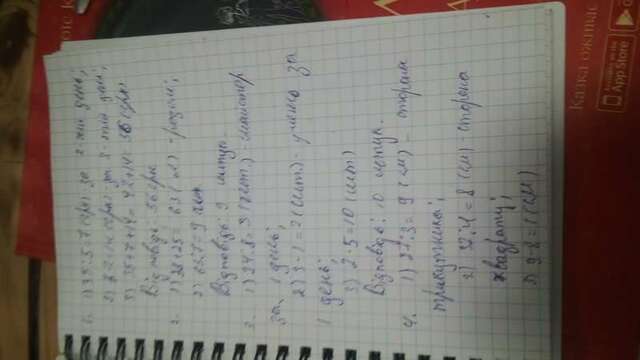 1. 1) 35:5=7 (грн)-за 2-ий день;
2) 7·2=14 (грн)-за 3-тій день;
3) 35+7+14=42+14=56 (грн)
Відповідь: 56 грн
2. 1) 38+25=63 (м)-разом;
2) 63:7=9
Відповідь: 9 штук.
3. 1) 24:8=3 (шт.)-майстер
за 1 день;
2) 3-1=2 (шт.)-учень за
1 день;
3) 2·5=10 (шт)
Відповідь: 10 штук.
4. 1) 27:3=9 (см)-сторона
трикутника;
2) 32:4=8 (см)-сторона
квадрату;
3) 9-8=1 (см)
Казка оживає
App Store